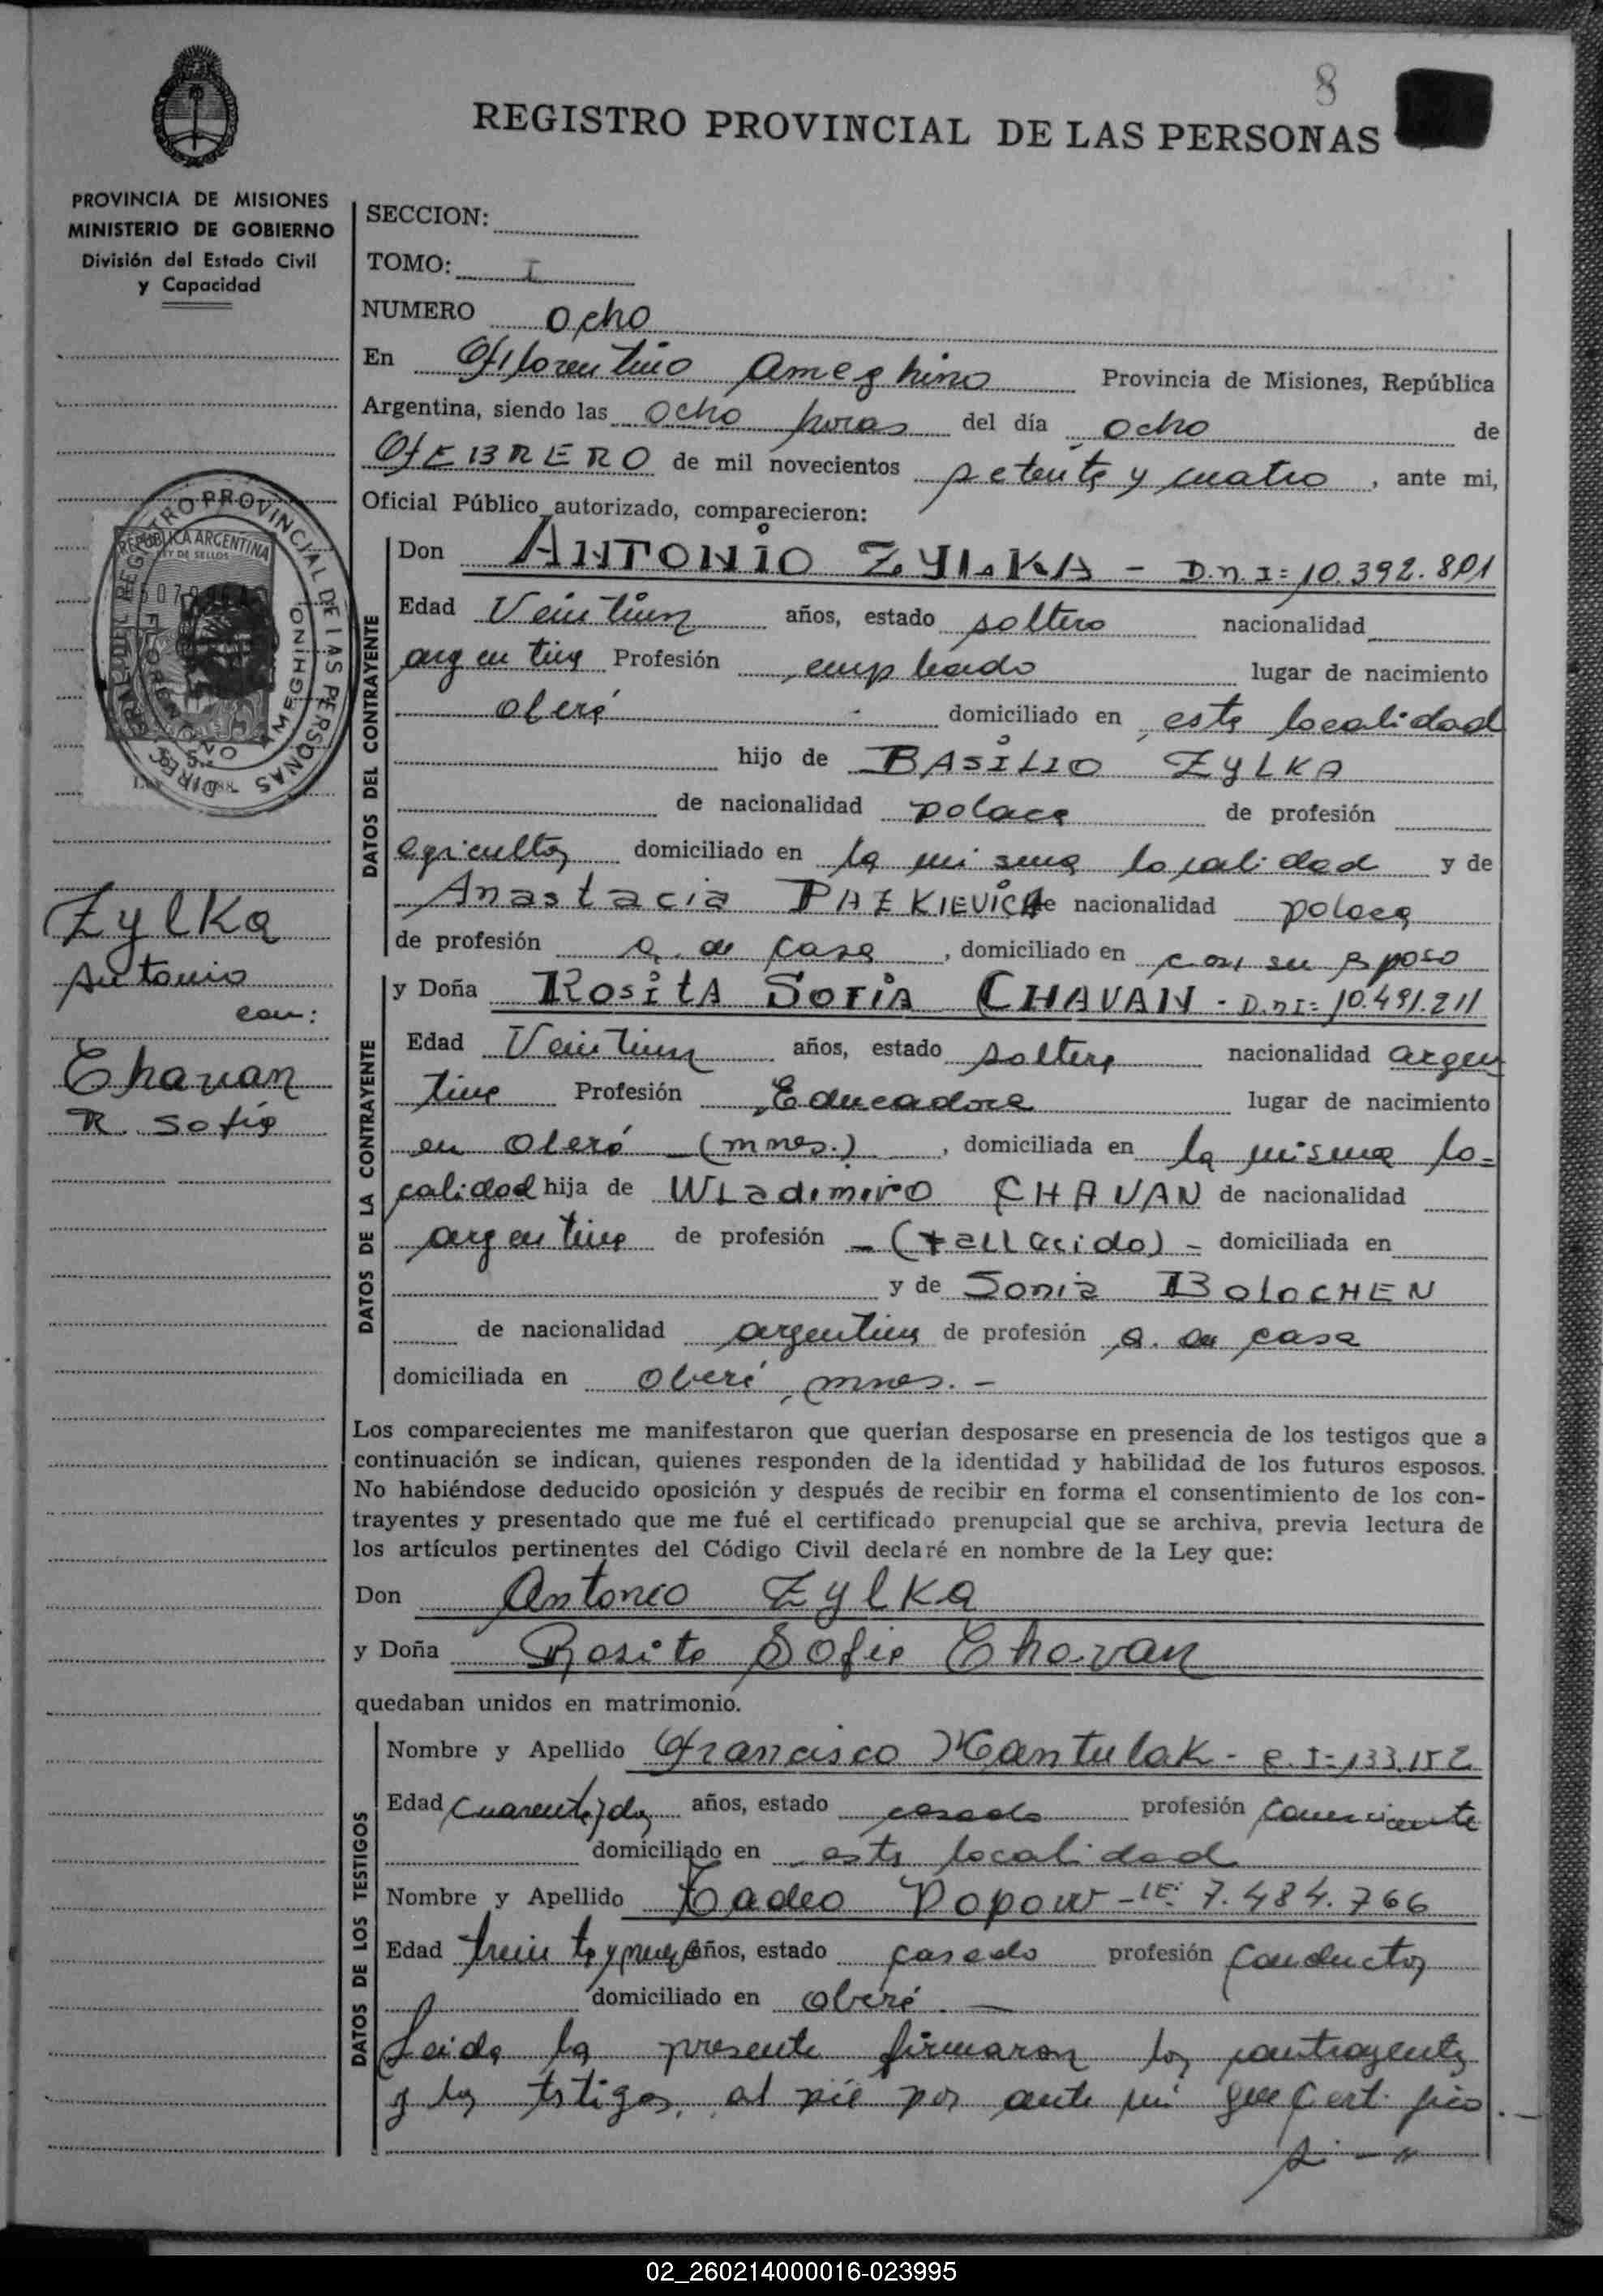 8
REGISTRO PROVINCIAL DE LAS PERSONAS
PROVINCIA DE MISIONES
MINISTERIO DE GOBIERNO
División del Estado Civil
y Capacidad
SECCION:
TOMO: I
NUMERO Ocho
En Florentino Ameghino Provincia de Misiones, República
Argentina, siendo las Ocho horas del día ocho de
FEBRERO de mil novecientos setenta y cuatro, ante mi,
Oficial Público autorizado, comparecieron:
REGISTRO PROVINCIAL DE LAS PERSONAS
REPUBLICA ARGENTINA
LEY DE SELLOS
FLORENTINO AMEGHINO
DATOS DEL CONTRAYENTE
Don ANTONIO ZYLKA - D.n I= 10.392.801
Edad Veintiun años, estado soltero nacionalidad
argentina Profesión empleado lugar de nacimiento
oberá domiciliado en esta localidad
hijo de BASILIO ZYLKA
de nacionalidad polaca de profesión
agricultor domiciliado en la misma localidad y de
Anastacia PAZKIEVICH de nacionalidad polaca
de profesión a. de casa, domiciliado en con su esposo
Zylka
Antonio
con:
Chavan
R. Sofía
DATOS DE LA CONTRAYENTE
y Doña ROSITA SOFIA CHAVAN - D.n I= 10.491.211
Edad Veintiun años, estado soltera nacionalidad argen
tina Profesión Educadora lugar de nacimiento
en Oberá (mnes.), domiciliada en la misma lo=
calidad hija de WLadimiro CHAVAN de nacionalidad
argentina de profesión - (fallecido) - domiciliada en
y de Sonia BoloCHEN
de nacionalidad argentina de profesión a. de casa
domiciliada en Oberá, mnes. -
Los comparecientes me manifestaron que querían desposarse en presencia de los testigos que a
continuación se indican, quienes responden de la identidad y habilidad de los futuros esposos.
No habiéndose deducido oposición y después de recibir en forma el consentimiento de los con-
trayentes y presentado que me fué el certificado prenupcial que se archiva, previa lectura de
los artículos pertinentes del Código Civil declaré en nombre de la Ley que:
Don Antonio Zylka
y Doña Rosita Sofia Chavan
quedaban unidos en matrimonio.
DATOS DE LOS TESTIGOS
Nombre y Apellido Francisco Hantulak - C.I= 133.152
Edad Cuarenta y dos años, estado casado profesión comerciante
domiciliado en esta localidad
Nombre y Apellido Tadeo Popow - LE: 7.484.766
Edad treinta y nueve años, estado casado profesión conductor
domiciliado en Oberá. -
Leida la presente firmaron los contrayentes
y los testigos, al pié por ante mi que certifico. -
02_260214000016-023995